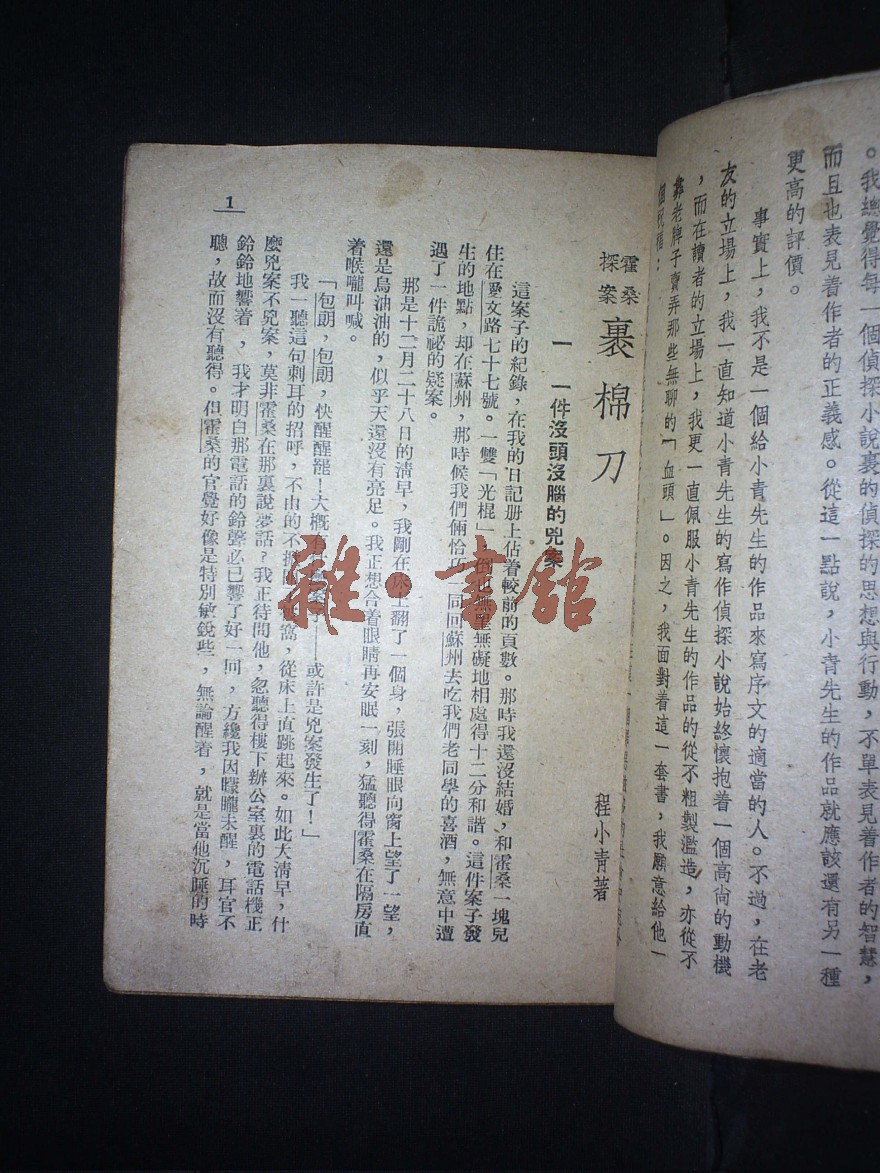 。我總覺得每一個偵探小說裏的偵探的思想與行動，不單表見着作者的智慧，
而且也表見着作者的正義感。從這一點說，小青先生的作品就應該還有另一種
更高的評價。
事實上，我不是一個給小青先生的作品來寫序文的適當的人。不過，在老
友的立場上，我一直知道小青先生的寫作偵探小說始終懷抱着一個高尚的動機
，而在讀者的立場上，我更一直佩服小青先生的作品的從不粗製濫造，亦從不
靠老牌子賣弄那些無聊的「血頭」。因之，我面對着這一套書，我願意給他一
個祝福：
霍桑
探案
裹棉刀
程小青著
一 一件沒頭沒腦的兇案
這案子的紀錄，在我的日記册上佔着較前的頁數。那時我還沒結婚，和霍桑一塊兒
住在愛文路七十七號。一雙「光棍」，倒也無罣無礙地相處得十二分和諧。這件案子發
生的地點，却在蘇州，那時候我們倆恰巧一同回蘇州去吃我們老同學的喜酒，無意中遭
遇了一件詭祕的疑案。
那是十二月二十八日的清早，我剛在床上翻了一個身，張開睡眼向窗上望了一望，
還是烏油油的，似乎天還沒有亮足。我正想合着眼睛再安眠一刻，猛聽得霍桑在隔房直
着喉嚨叫喊。
「包朗，包朗，快醒醒罷！大概有 案子——或許是兇案發生了！」
我一聽這句刺耳的招呼，不由的不 窩，從床上直跳起來。如此大清早，什
麼兇案不兇案，莫非霍桑在那裏說夢話？我正待問他，忽聽得樓下辦公室裏的電話機正
鈴鈴地響着，我才明白那電話的鈴聲必已響了好一回，方纔我因矇矓未醒，耳官不
聽，故而沒有聽得。但霍桑的官覺好像是特別敏銳些，無論醒着，就是當他沉睡的時
1
雜·書館